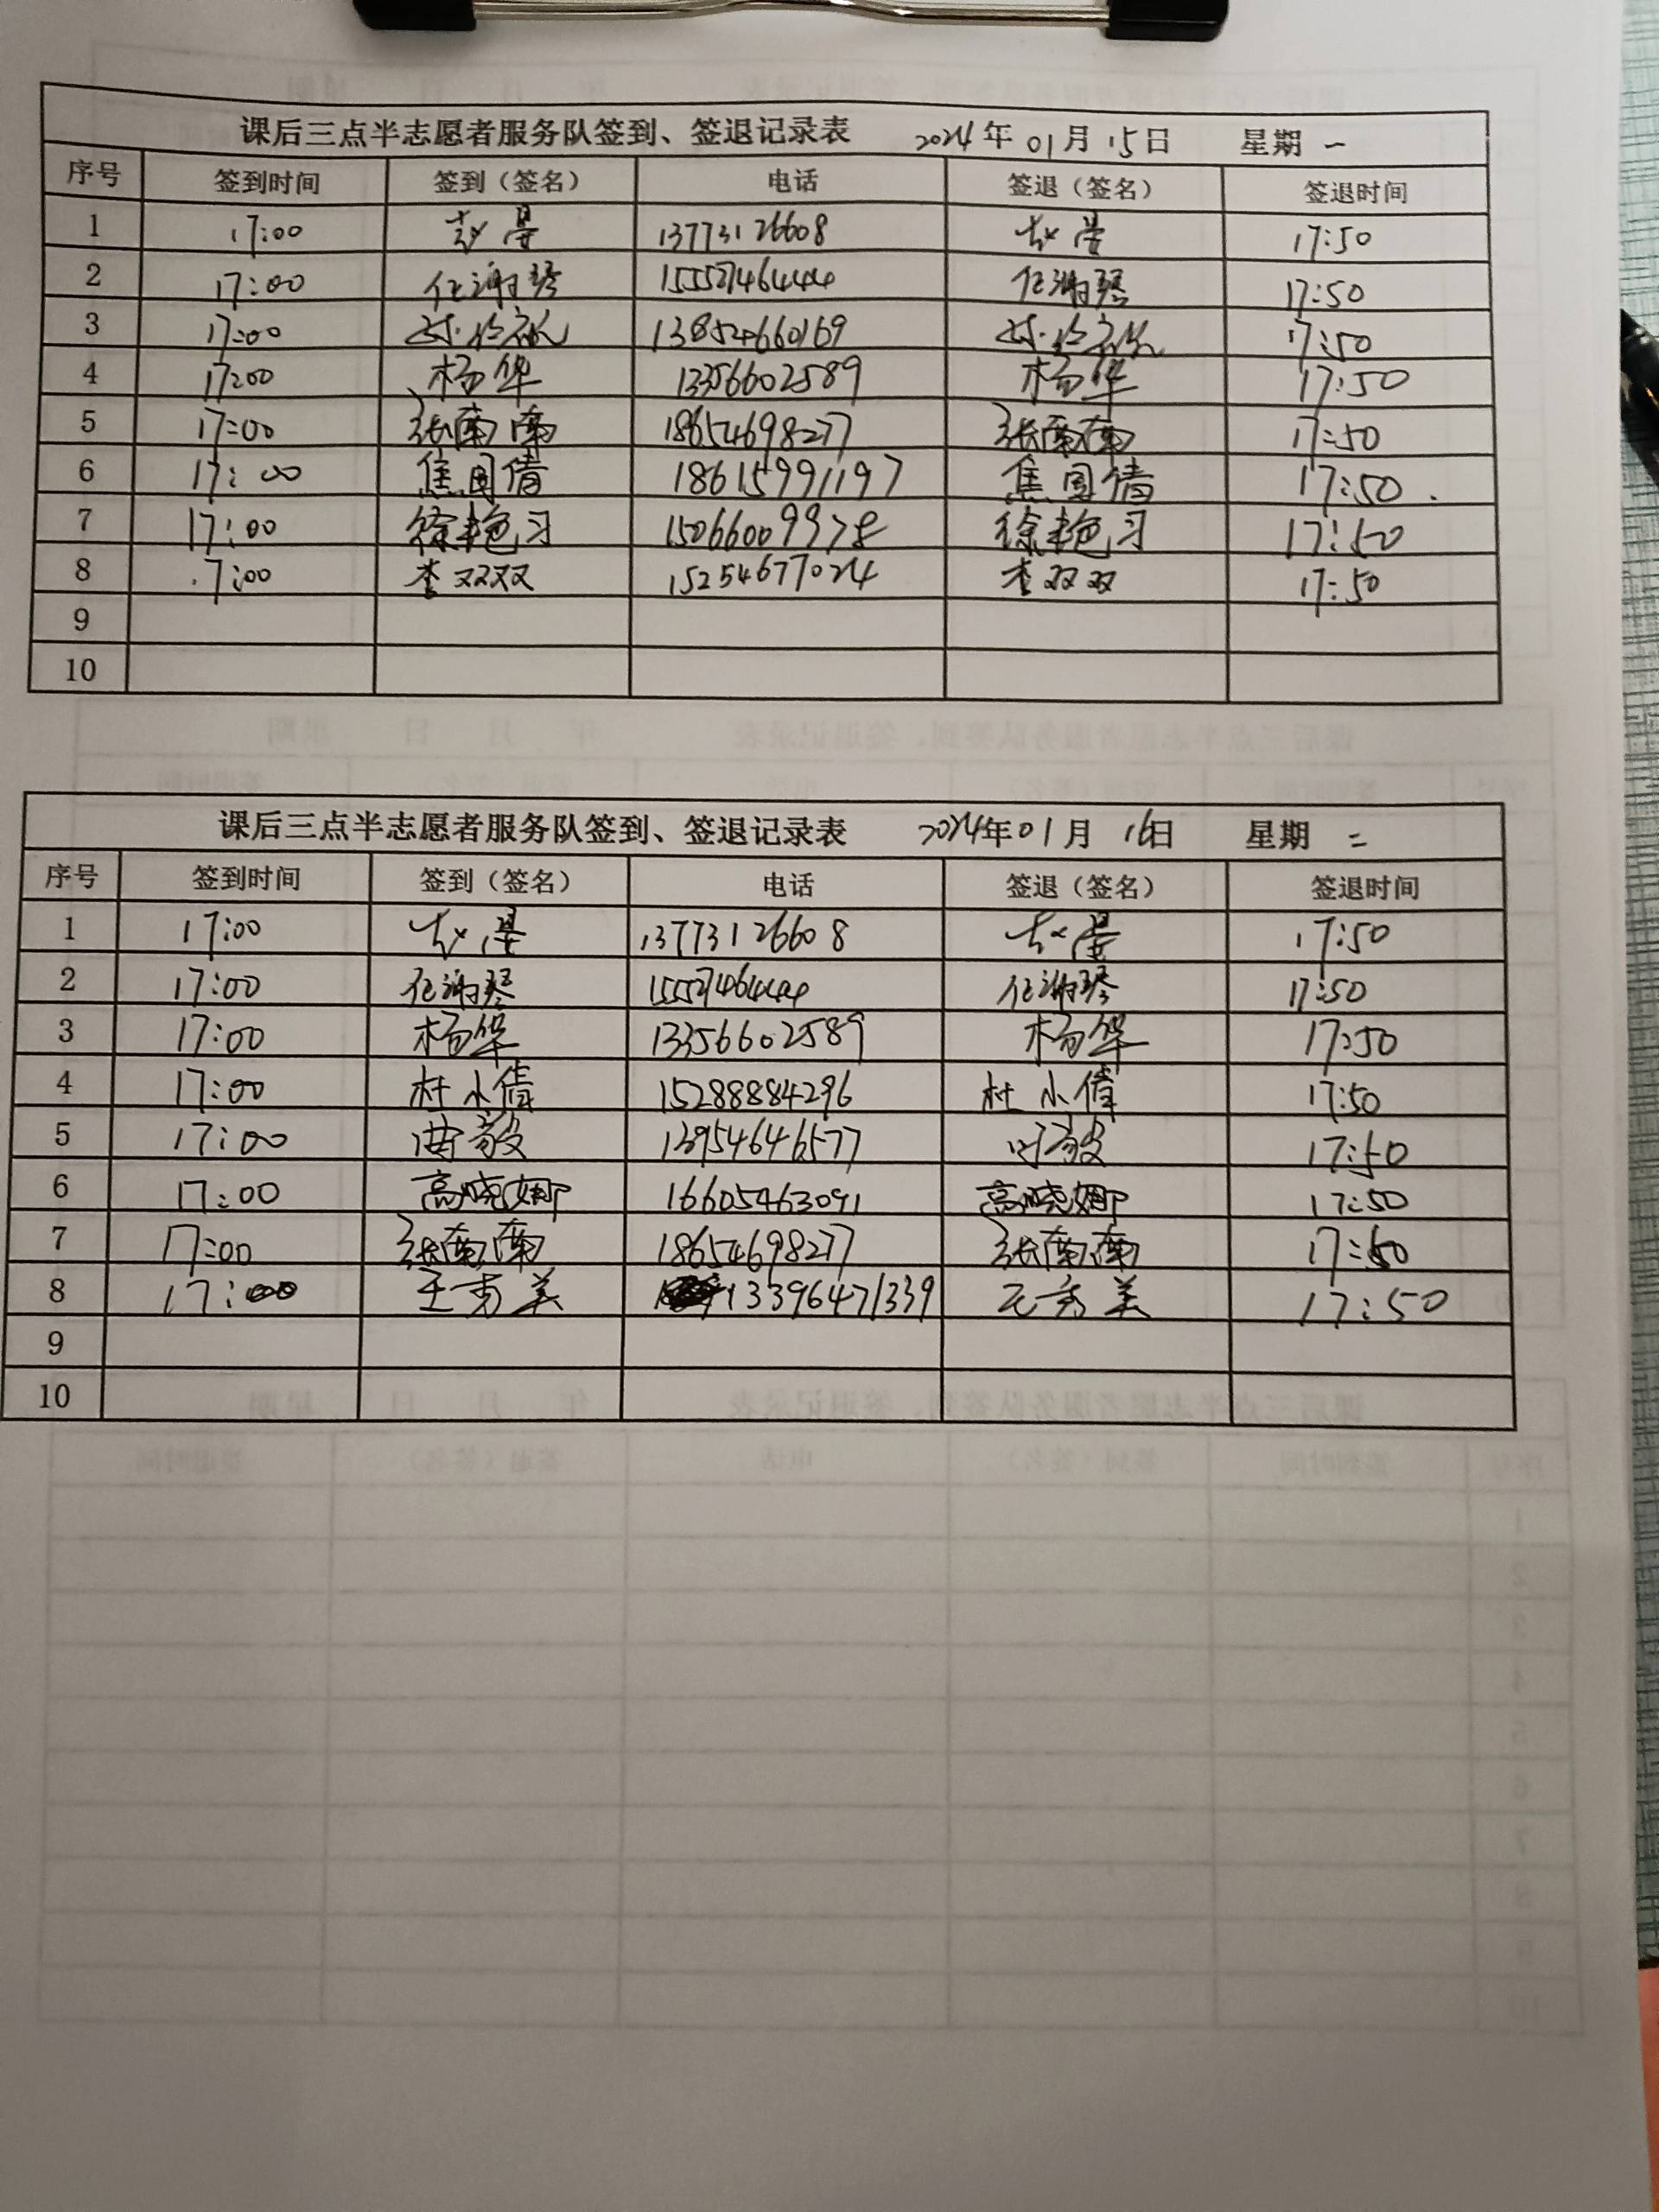 课后三点半志愿者服务队签到、签退记录表 2024年01月15日 星期一
序号 签到时间 签到（签名） 电话 签退（签名） 签退时间
1 17:00 赵晏 13773126608 赵晏 17:50
2 17:00 任湘琴 15552746444 任湘琴 17:50
3 17:00 138524660169 17:50
4 17:00 杨华 13356602589 杨华 17:50
5 17:00 张南南 18654698277 张南南 17:50
6 17:00 焦国倩 18615991197 焦国倩 17:50
7 17:00 徐艳习 徐艳习 17:50
8 17:00 李双双 15254677024 李双双 17:50
9
10
课后三点半志愿者服务队签到、签退记录表 2024年01月16日 星期二
序号 签到时间 签到（签名） 电话 签退（签名） 签退时间
1 17:00 赵晏 13773126608 赵晏 17:50
2 17:00 任湘琴 任湘琴 17:50
3 17:00 杨华 13356602589 杨华 17:50
4 17:00 杜小倩 15288884296 杜小倩 17:50
5 17:00 13954646577 17:50
6 17:00 高晓娜 16605463091 高晓娜 17:50
7 17:00 张南南 18654698277 张南南 17:50
8 17:00 王秀美 13396471339 王秀美 17:50
9
10